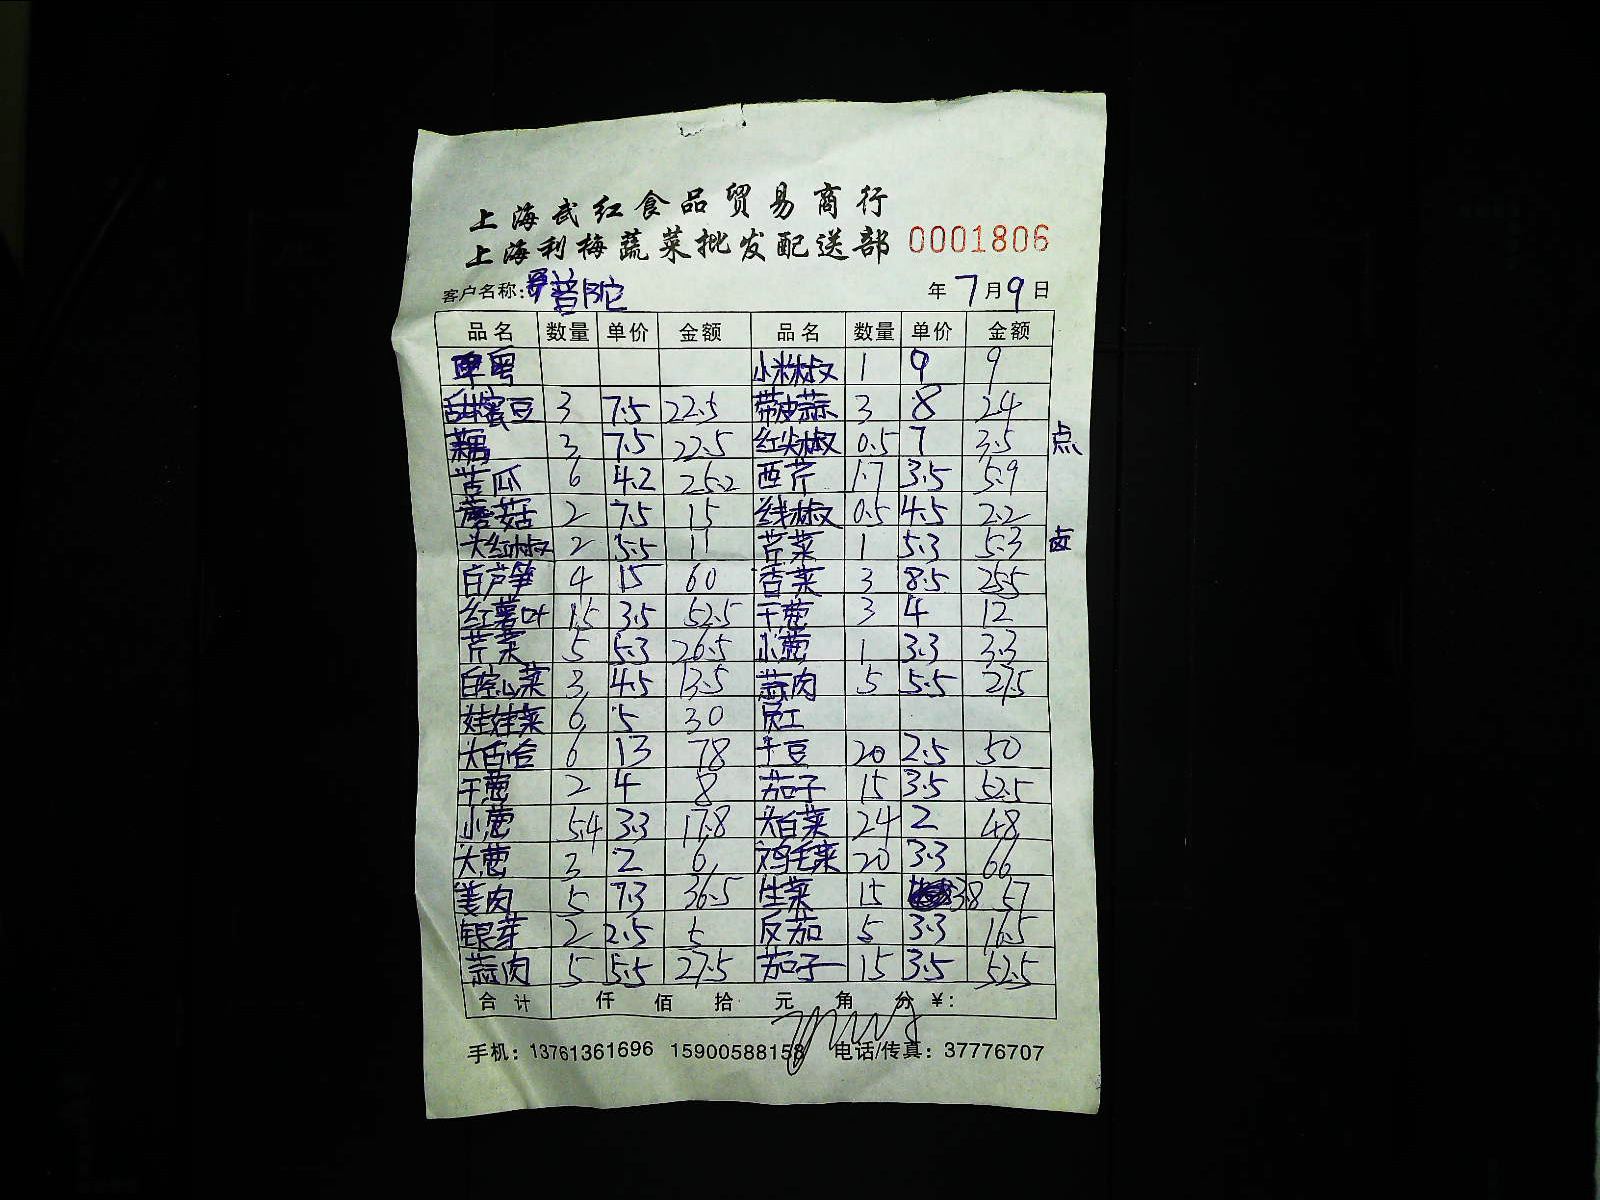 上海武红食品贸易商行
上海利梅蔬菜批发配送部 0001806
客户名称: 普陀 年 7 月 9 日
品名 数量 单价 金额 品名 数量 单价 金额
小米椒 1 9 9
甜蜜豆 3 7.5 22.5 带皮蒜 3 8 24
藕 3 7.5 22.5 红尖椒 0.5 7 3.5 点
苦瓜 6 4.2 25.2 西芹 1.7 3.5 5.9
蘑菇 2 7.5 15 线椒 0.5 4.5 2.2
大红椒 2 5.5 11 芹菜 1 5.3 5.3 卤
白芦笋 4 15 60 香菜 3 8.5 25.5
红薯叶 15 3.5 52.5 干葱 3 4 12
芹菜 5 5.3 26.5 小葱 1 3.3 3.3
白空心菜 3 4.5 13.5 蒜肉 5 5.5 27.5
娃娃菜 6 5 30 员工
大百合 6 13 78 豆 20 2.5 50
干葱 2 4 8 茄子 15 3.5 52.5
小葱 5.4 3.3 17.8 大白菜 24 2 48
大葱 3 2 6 鸡毛菜 20 3.3 66
姜肉 5 7.3 36.5 生菜 15 3.8 57
银芽 2 2.5 5 反茄 5 3.3 16.5
蒜肉 5 5.5 27.5 茄子 15 3.5 52.5
合计 仟 佰 拾 元 角 分 ¥:
手机: 13761361696 15900588158 电话/传真: 37776707